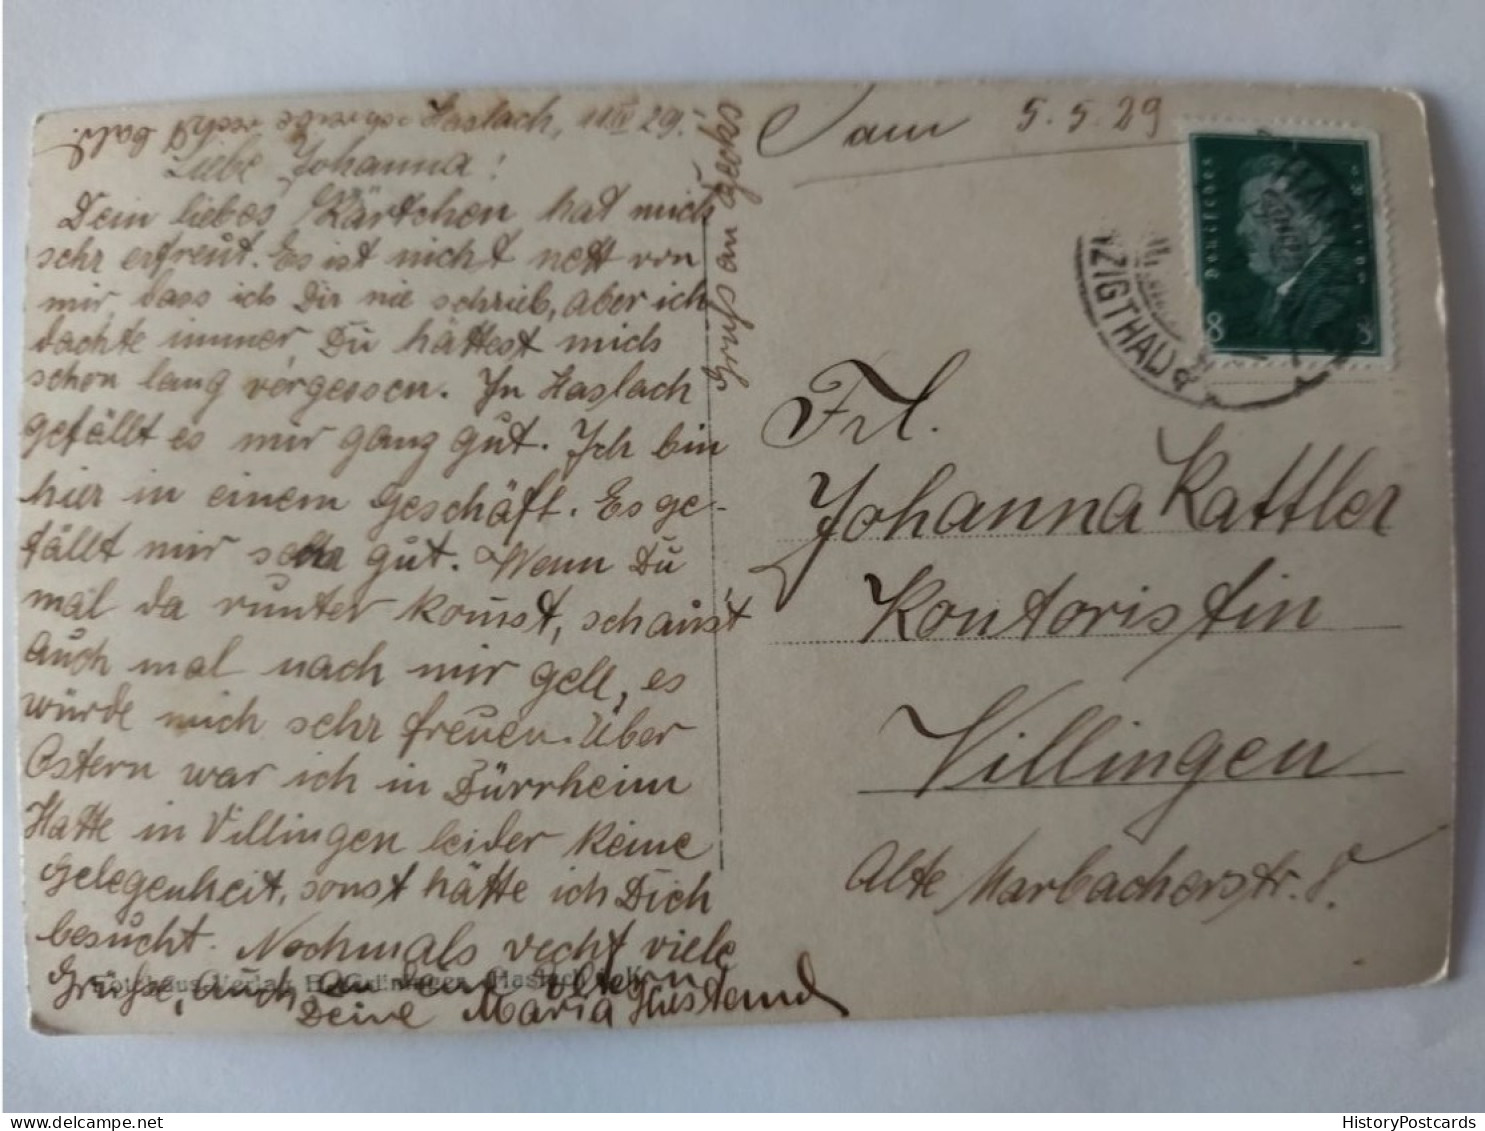 Haslach, 11.IV 29.
Liebe Johanna!
Dein liebes Kärtchen hat mich
sehr erfreut. Es ist nicht nett von
mir, dass ich Dir nie schrieb, aber ich
dachte immer, Du hättest mich
schon lang vergessen. In Haslach
gefällt es mir ganz gut. Ich bin
hier in einem Geschäft. Es ge-
fällt mir sehr gut. Wenn Du
mal da runter komst, schaust
auch mal nach mir gell, es
würde mich sehr freuen. Über
Ostern war ich in Dürrheim
Hatte in Villingen leider keine
Gelegenheit, sonst hätte ich Dich
besucht. Nochmals recht viele
Grüsse, auch an eltern
Deine Maria
schreibe recht bald.
Gruss an
am 5.5.29
Deutsches Reich
8 8
ZIGTHAL
Frl.
Johanna Kattler
Kontoristin
Villingen
Alte Marbacherstr. 8.
Verlag Haslach
delcampe.net
HistoryPostcards